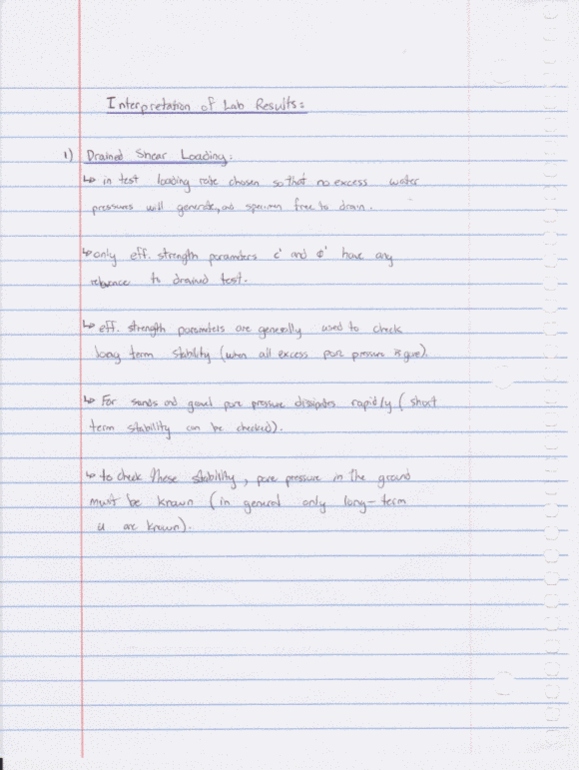 Interpretation of Lab Results:
1) Drained Shear Loading:
↳ in test loading rate chosen so that no excess water
pressures will generate, and specimen free to drain.
↳ only eff. strength parameters c' and φ' have any
relevance to drained test.
↳ eff. strength parameters are generally used to check
long term stability (when all excess pore pressure is gone).
↳ For sands and gravel pore pressure dissipates rapidly (short
term stability can be checked).
↳ to check these stability, pore pressure in the ground
must be known (in general only long-term
u are known).